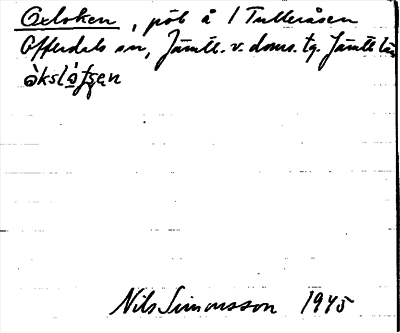 Oxloken, påb å 1 Tulleråsen
Offerdals sn, Jämtl. v. doms. tg. Jämtl. län
Nils Simonsson 1945